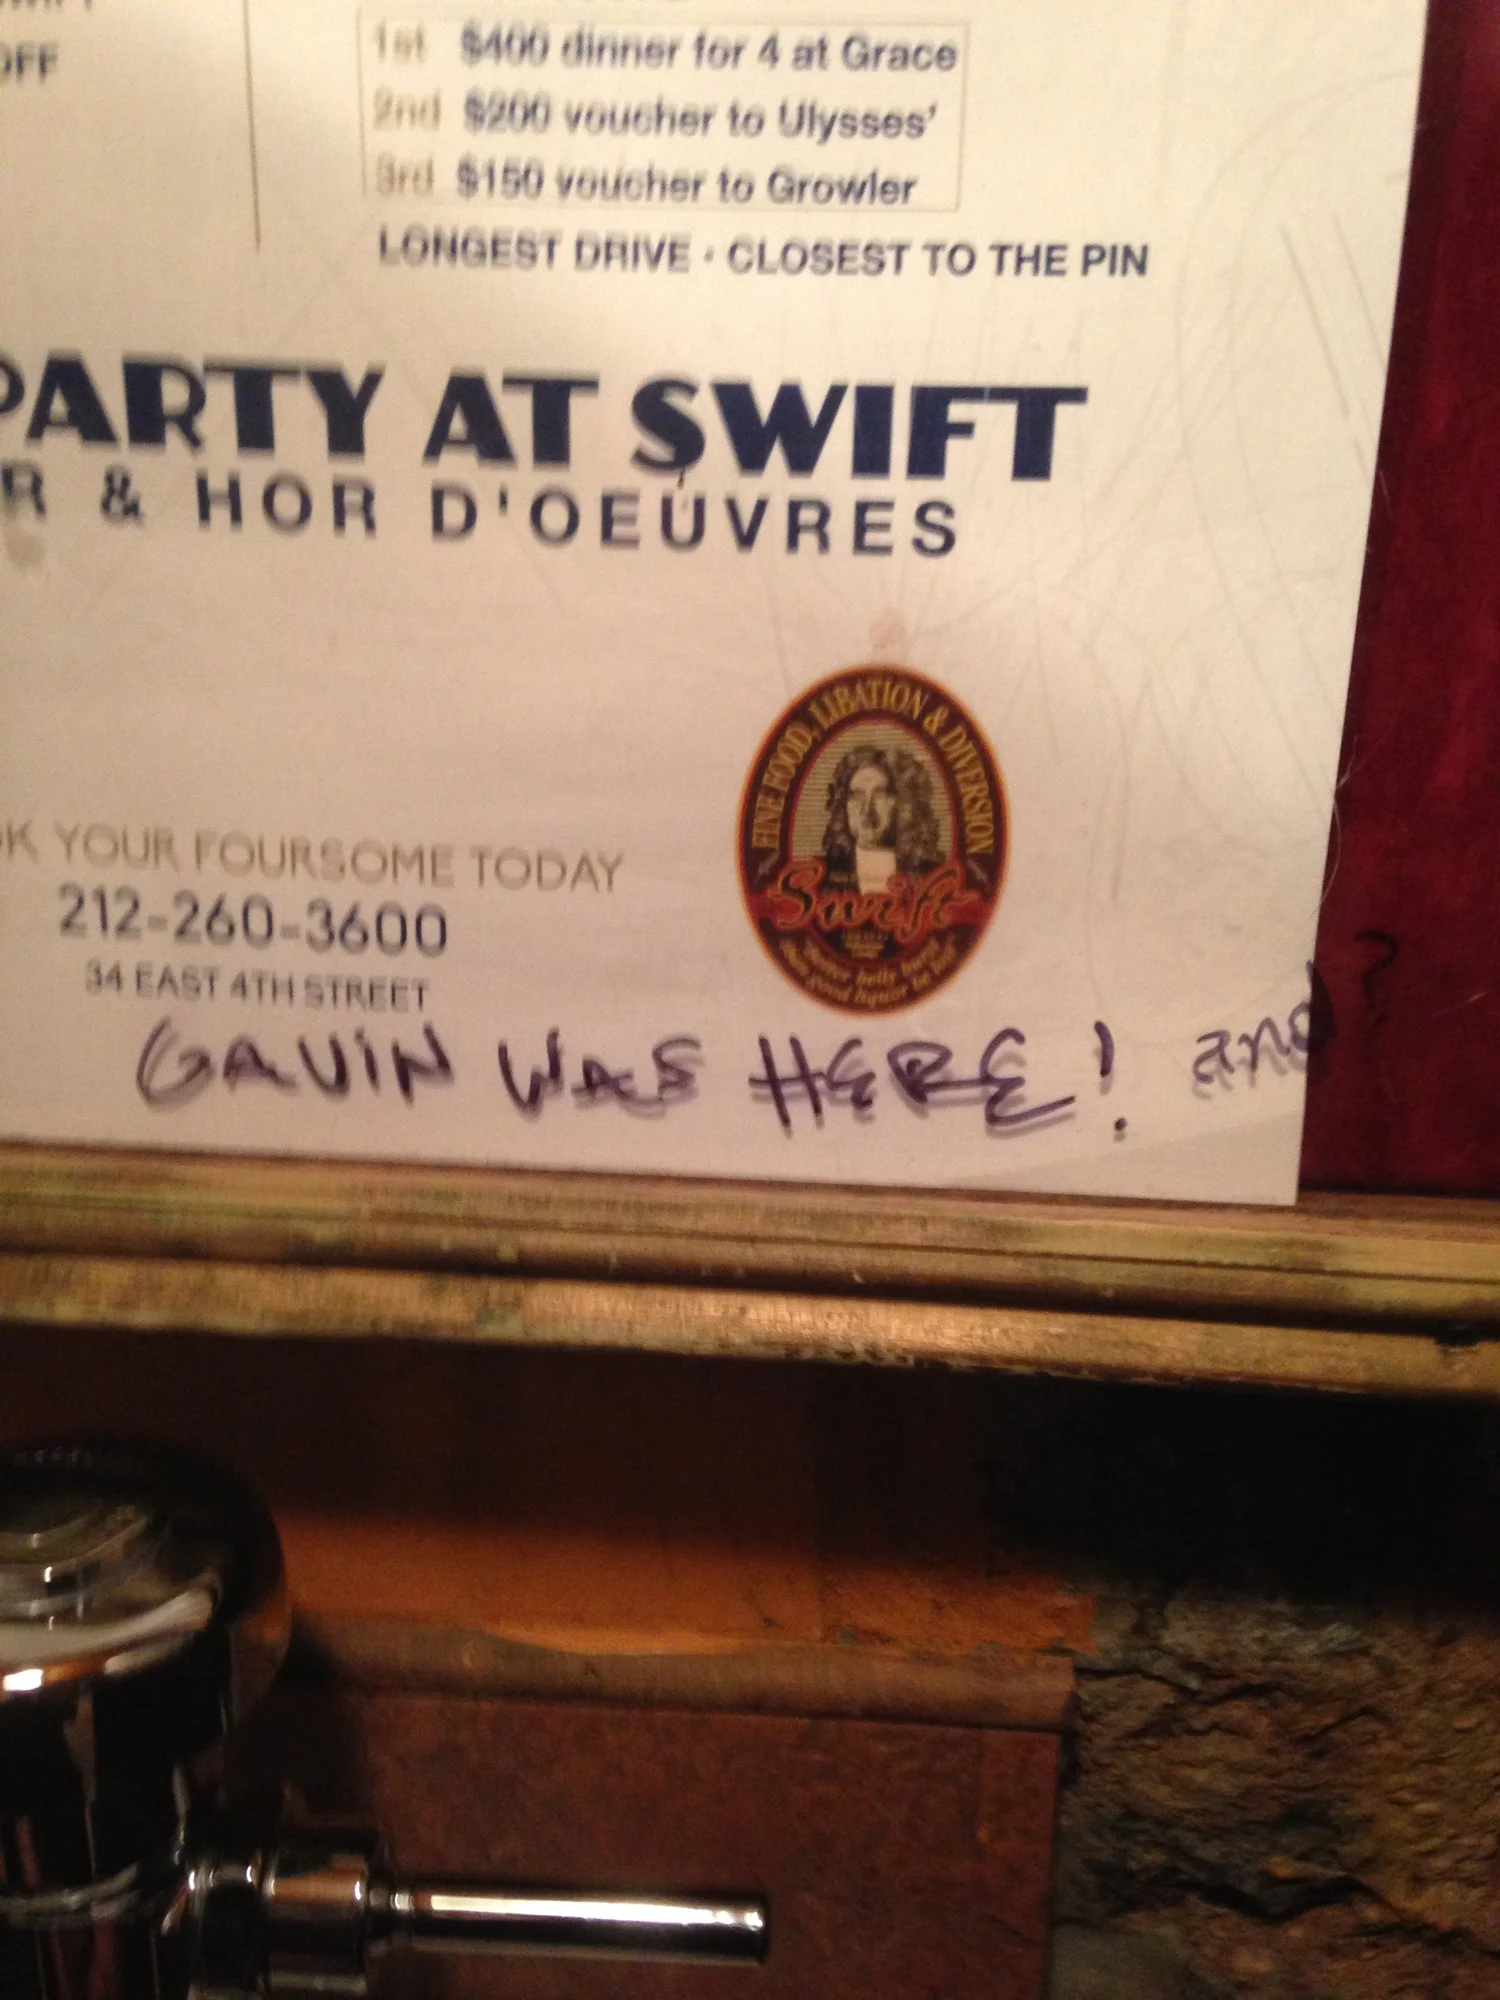 OFF
1st $400 dinner for 4 at Grace
2nd $200 voucher to Ulysses'
3rd $150 voucher to Growler
LONGEST DRIVE · CLOSEST TO THE PIN
PARTY AT SWIFT
R & HOR D'OEUVRES
FINE FOOD, LIBATION & DIVERSION
Swift
K YOUR FOURSOME TODAY
212-260-3600
34 EAST 4TH STREET
GAVIN WAS HERE! and?